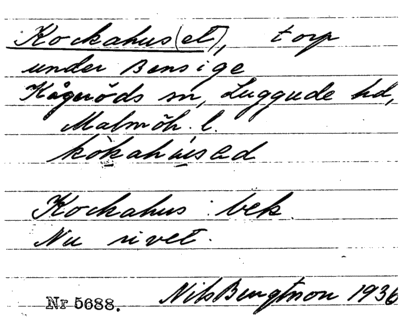 Kockahus(et), torp
under Bensige
Kågeröds sn, Luggude hd,
Malmöh. l.
kòkahúsed
Kockahus: bek.
Nu rivet.
Nr 5688. Nils Bengtsson 1936